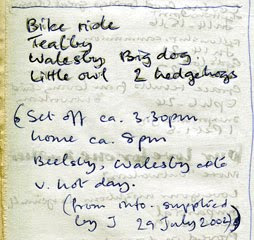 Bike ride
Tealby
Walesby Big dog
Little owl 2 hedgehogs
(Set off ca. 3.30pm
home ca. 8pm
Beelsby, Walesby etc
v. hot day.
(from info. supplied
by J 29 July 2002))